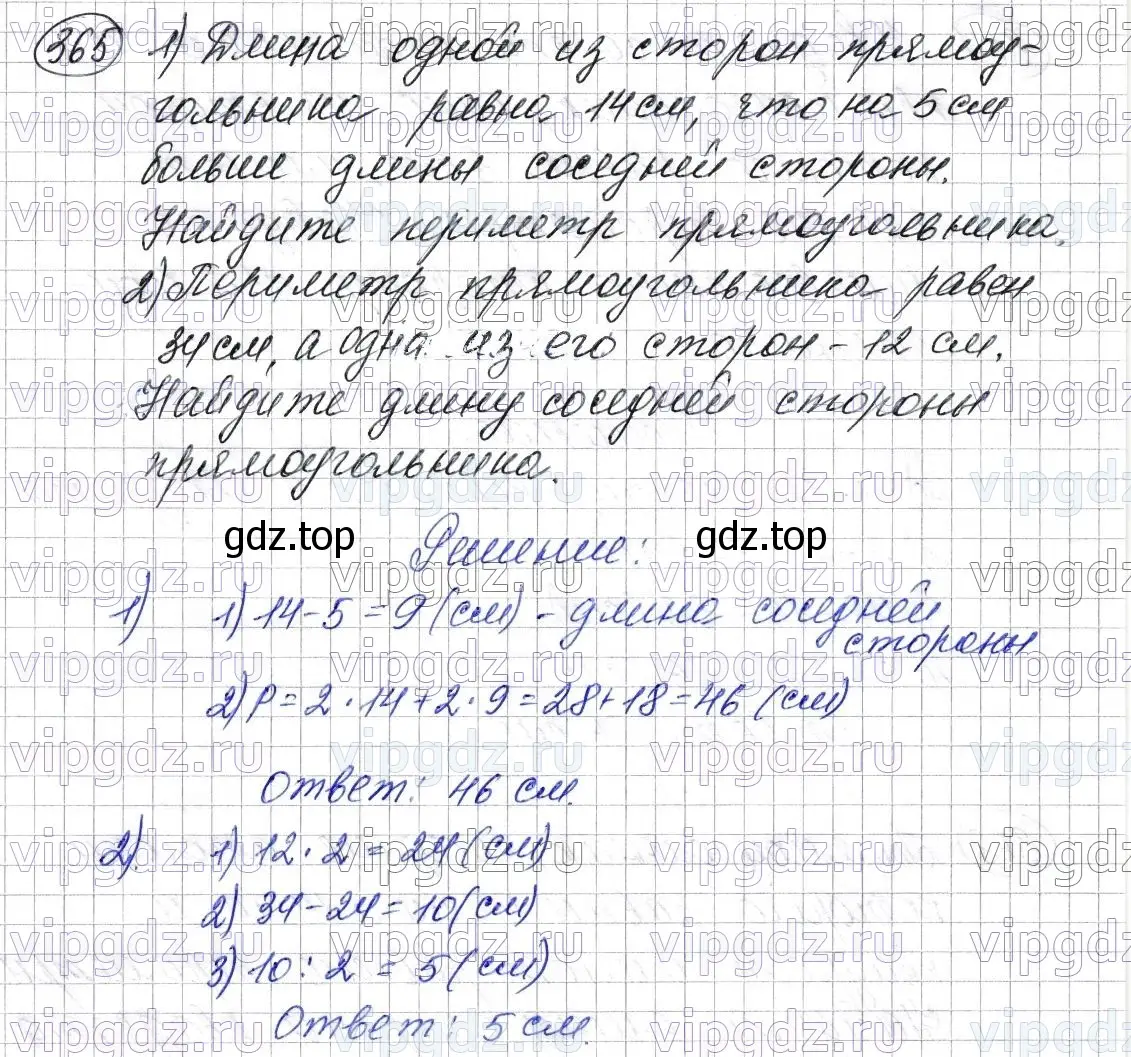 365 1) Длина одной из сторон прямоу-
гольника равна 14 см, что на 5 см
больше длины соседней стороны.
Найдите периметр прямоугольника.
2) Периметр прямоугольника равен
34 см, а одна из его сторон - 12 см.
Найдите длину соседней стороны
прямоугольника.
gdz.top Решение: gdz.top
1) 1) 14 - 5 = 9 (см) - длина соседней
стороны
2) P = 2 · 14 + 2 · 9 = 28 + 18 = 46 (см)
Ответ: 46 см.
2) 1) 12 · 2 = 24 (см)
2) 34 - 24 = 10 (см)
3) 10 : 2 = 5 (см)
Ответ: 5 см.
vipgdz.ru